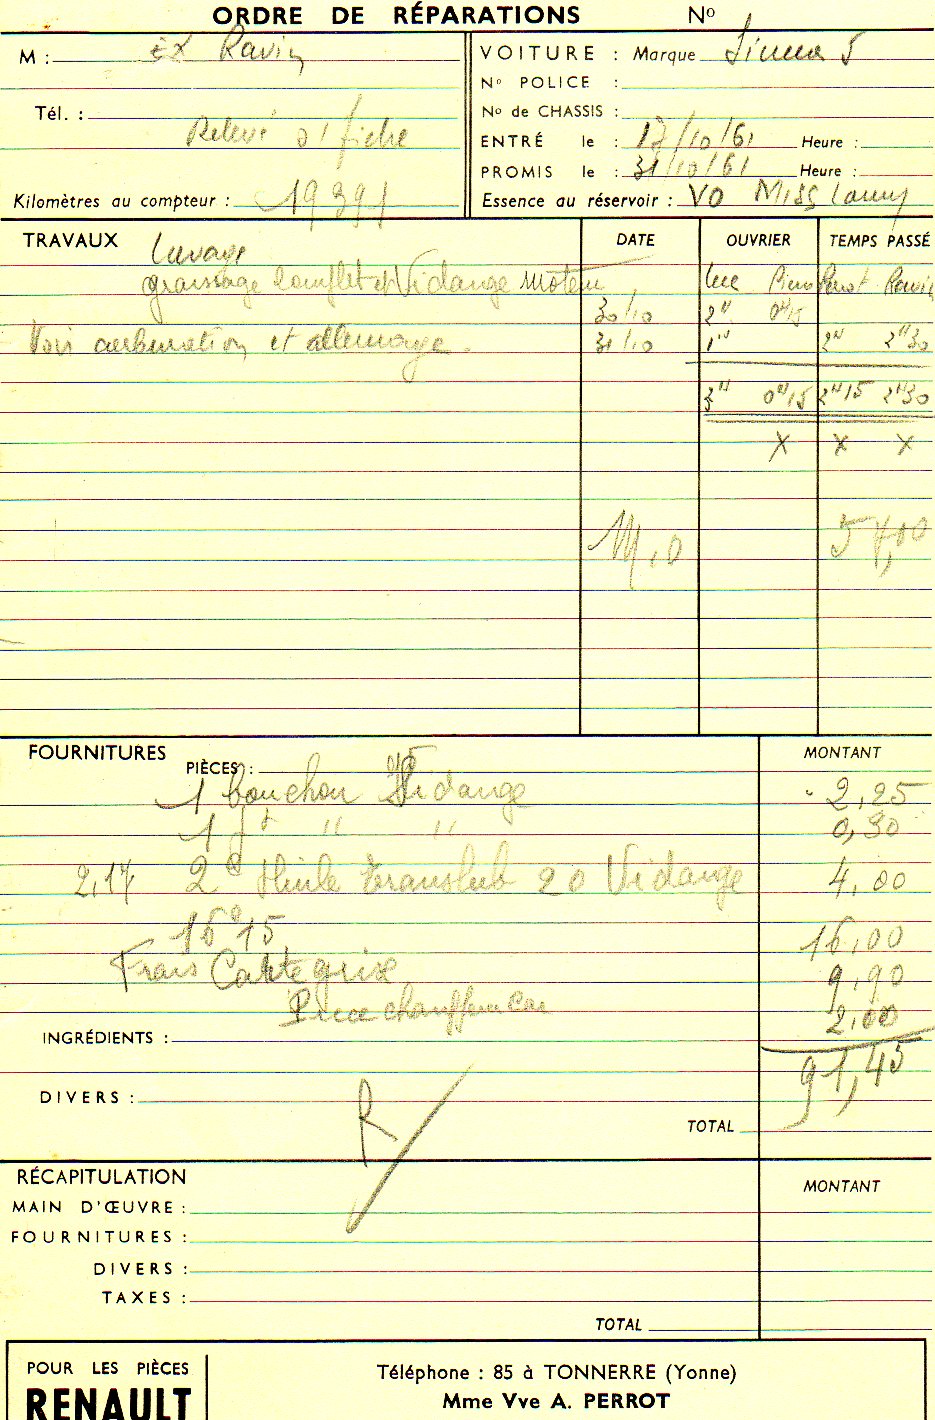 ORDRE DE RÉPARATIONS Nº
M : Ex Ravin
VOITURE : Marque Simca 5
Nº POLICE :
Tél. :
Nº de CHASSIS :
Relevé s/ fiche
ENTRÉ le : 17/10/61 Heure :
PROMIS le : 31/10/61 Heure :
Kilomètres au compteur : 19391
Essence au réservoir : VO Miss
TRAVAUX DATE OUVRIER TEMPS PASSÉ
Lavage
graissage complet et Vidange moteur Luc Perrot Ravin
30/10 2H 0H15
Voir carburation et allumage. 31/10 1H 2H 2H30
3H 0H15 2H15 2H30
X X X
M.O 57,00
FOURNITURES MONTANT
PIÈCES :
1 bouchon Vidange 2,25
1 jt " " 0,30
2,17 2 Huile Translub 20 Vidange 4,00
16 15 16,00
Frais Carte grise 9,90
chauffeur Car 2,00
INGRÉDIENTS :
91,45
DIVERS :
R
TOTAL
RÉCAPITULATION MONTANT
MAIN D'ŒUVRE :
FOURNITURES :
DIVERS :
TAXES :
TOTAL
POUR LES PIÈCES
RENAULT
Téléphone : 85 à TONNERRE (Yonne)
Mme Vve A. PERROT